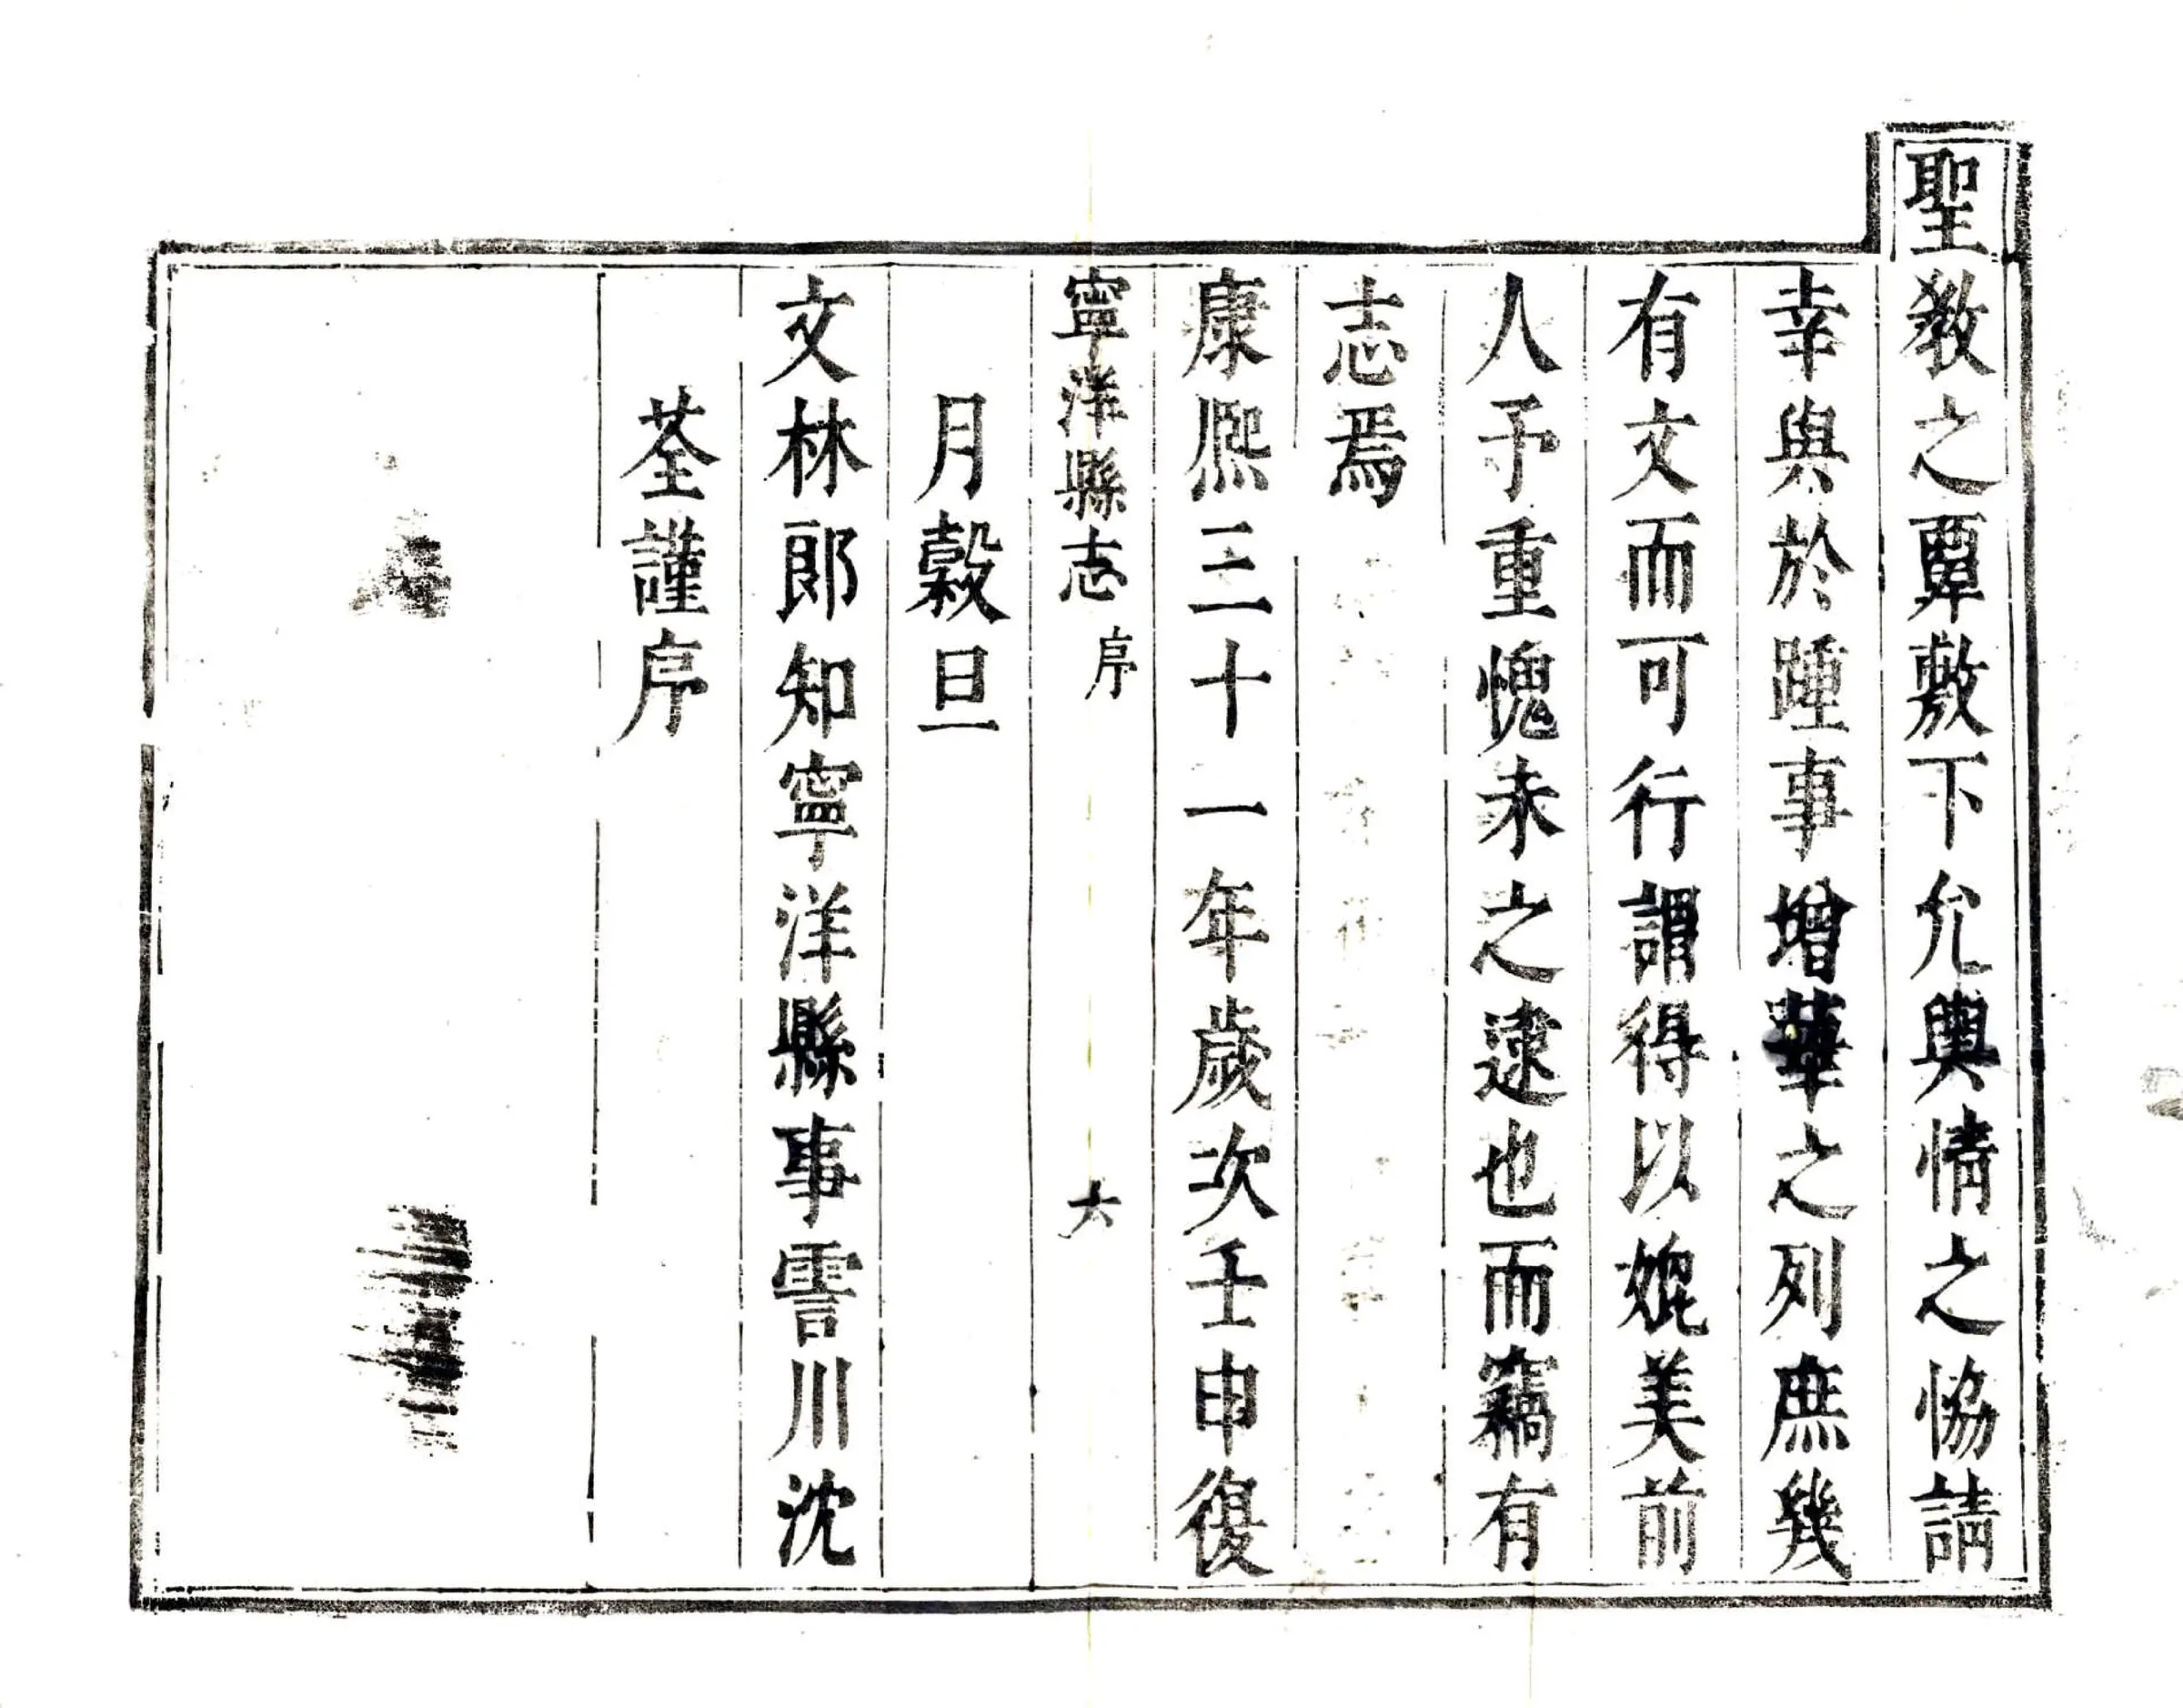 聖教之覃敷下允輿情之恊請
幸與於踵事增華之列庶幾
有文而可行謂得以媲美前
人予重愧未之逮也而竊有
志焉
康熙三十一年歲次壬申復
寧洋縣志 序 六
月穀旦
文林郎知寧洋縣事霅川沈
荃謹序